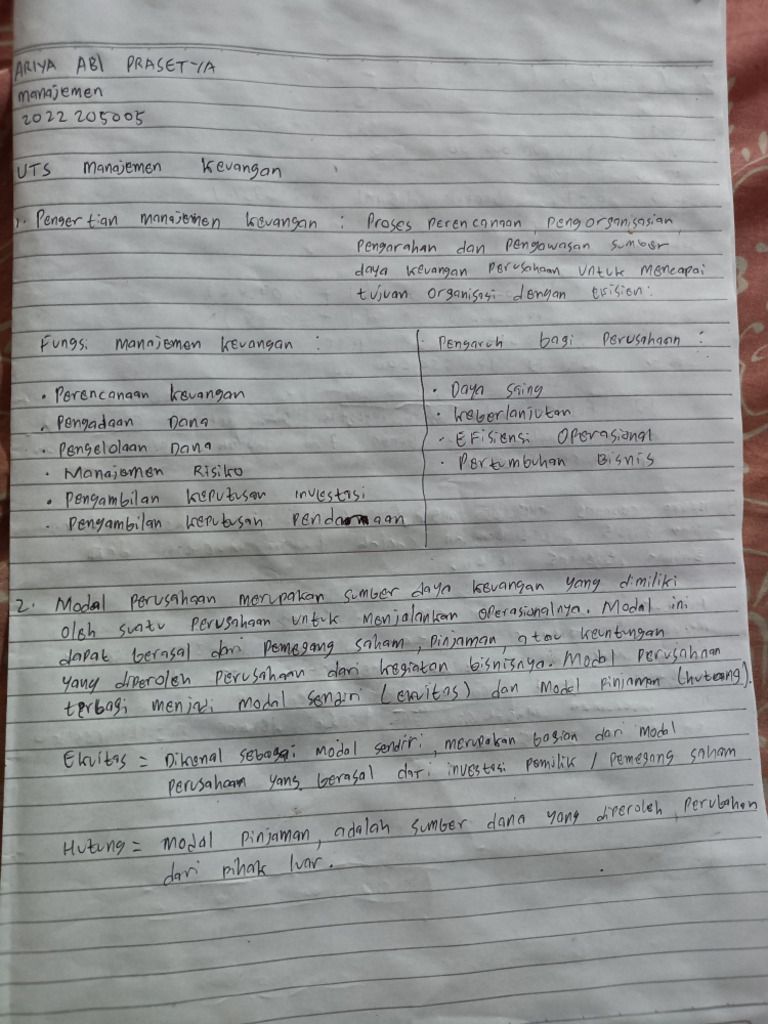 ARIYA ABI PRASETYA
manajemen
2022205005
UTS Manajemen Keuangan
1. Pengertian manajemen keuangan : Proses perencanaan, pengorganisasian,
pengarahan dan pengawasan sumber
daya keuangan perusahaan untuk mencapai
tujuan organisasi dengan efisien.
Fungsi manajemen keuangan :
• Perencanaan keuangan
• Pengadaan Dana
• Pengelolaan Dana
• Manajemen Risiko
• Pengambilan keputusan investasi
• Pengambilan keputusan Pendanaan
Pengaruh bagi perusahaan :
• Daya saing
• keberlanjutan
• EFisiensi Operasional
• Pertumbuhan Bisnis
2. Modal perusahaan merupakan sumber daya keuangan yang dimiliki
oleh suatu perusahaan untuk menjalankan operasionalnya. Modal ini
dapat berasal dari pemegang saham, pinjaman, atau keuntungan
yang diperoleh perusahaan dari kegiatan bisnisnya. Modal perusahaan
terbagi menjadi modal sendiri (ekuitas) dan Modal pinjaman (hutang).
Ekuitas = Dikenal sebagai modal sendiri, merupakan bagian dari modal
perusahaan yang berasal dari investasi pemilik / pemegang saham
Hutang = modal pinjaman, adalah sumber dana yang diperoleh, perubahan
dari pihak luar.